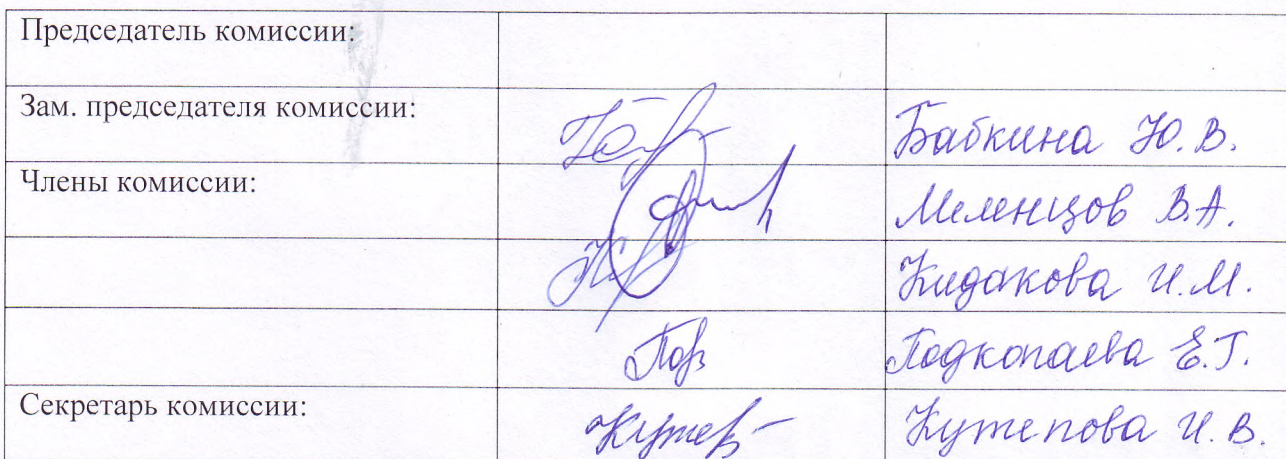 Председатель комиссии:
Зам. председателя комиссии: Бабкина Ю. В.
Члены комиссии: Меленцов В.А.
Кидакова И.М.
Подкопаева Е.Г.
Секретарь комиссии: Кутепова И. В.